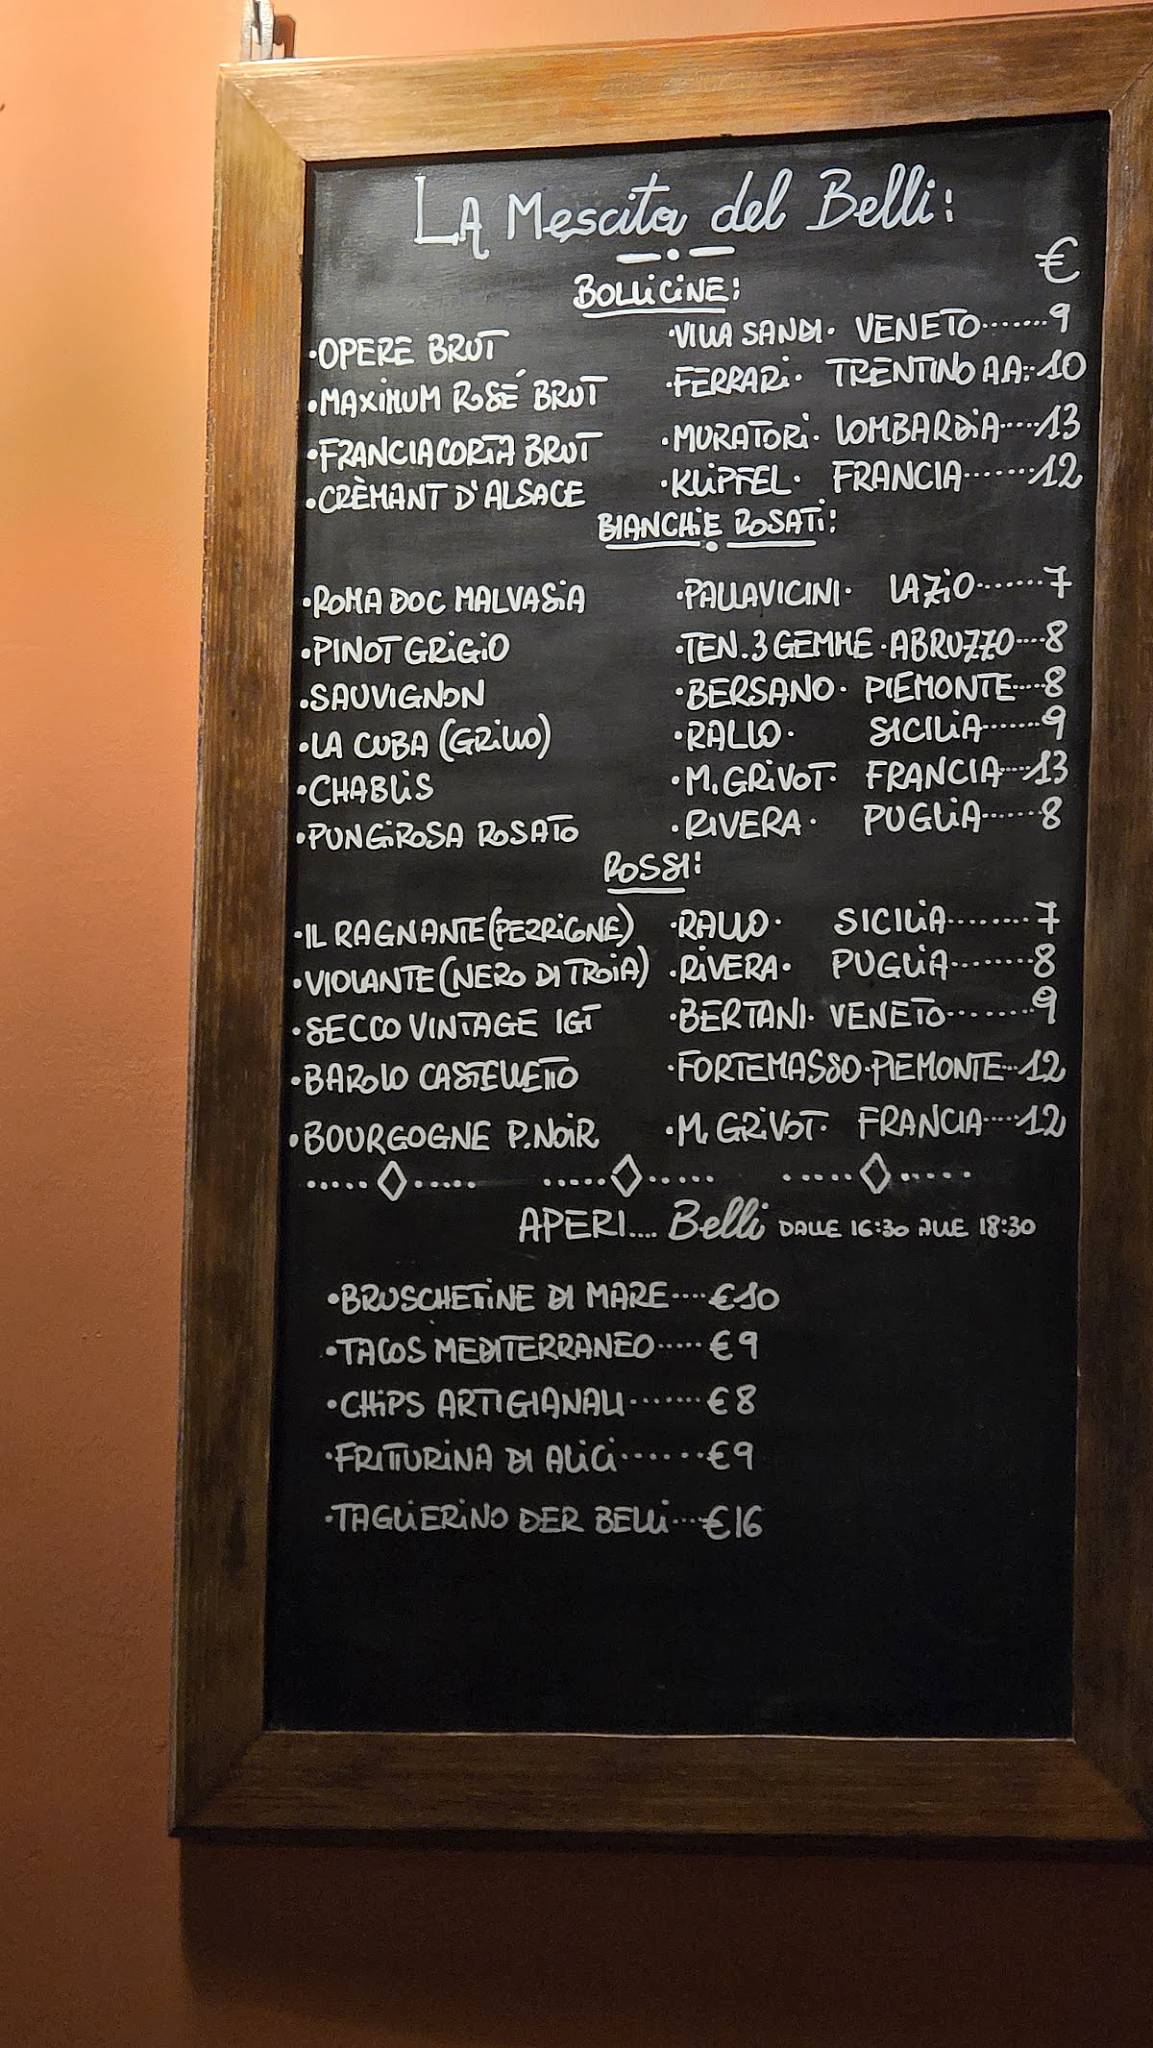 LA Mescita del Belli:
€
BOLLICINE:
•OPERE BRUT •VILLA SANDI• VENETO.......9
•MAXIMUM ROSÉ BRUT •FERRARI• TRENTINO A.A...10
•FRANCIACORTA BRUT •MURATORI• LOMBARDIA.....13
•CRÈMANT D'ALSACE •KLIPFEL• FRANCIA.......12
BIANCHI E ROSATI:
•ROMA DOC MALVASIA •PALLAVICINI• LAZIO.......7
•PINOT GRIGIO •TEN.3 GEMME•ABRUZZO....8
•SAUVIGNON •BERSANO• PIEMONTE....8
•LA CUBA (GRILLO) •RALLO• SICILIA.......9
•CHABLIS •M.GRIVOT• FRANCIA....13
•PUNGIROSA ROSATO •RIVERA• PUGLIA.......8
ROSSI:
•IL RAGNANTE (PERRIGNE) •RALLO• SICILIA........7
•VIOLANTE (NERO DI TROIA) •RIVERA• PUGLIA........8
•SECCO VINTAGE IGT •BERTANI• VENETO........9
•BAROLO CASTELLETTO •FORTEMASSO•PIEMONTE...12
•BOURGOGNE P.NOIR •M. GRIVOT• FRANCIA....12
APERI.... Belli DALLE 16:30 ALLE 18:30
•BRUSCHETTINE DI MARE....€10
•TACOS MEDITERRANEO.....€9
•CHIPS ARTIGIANALI.......€8
•FRITTURINA DI ALICI.......€9
•TAGLIERINO DER BELLI...€16